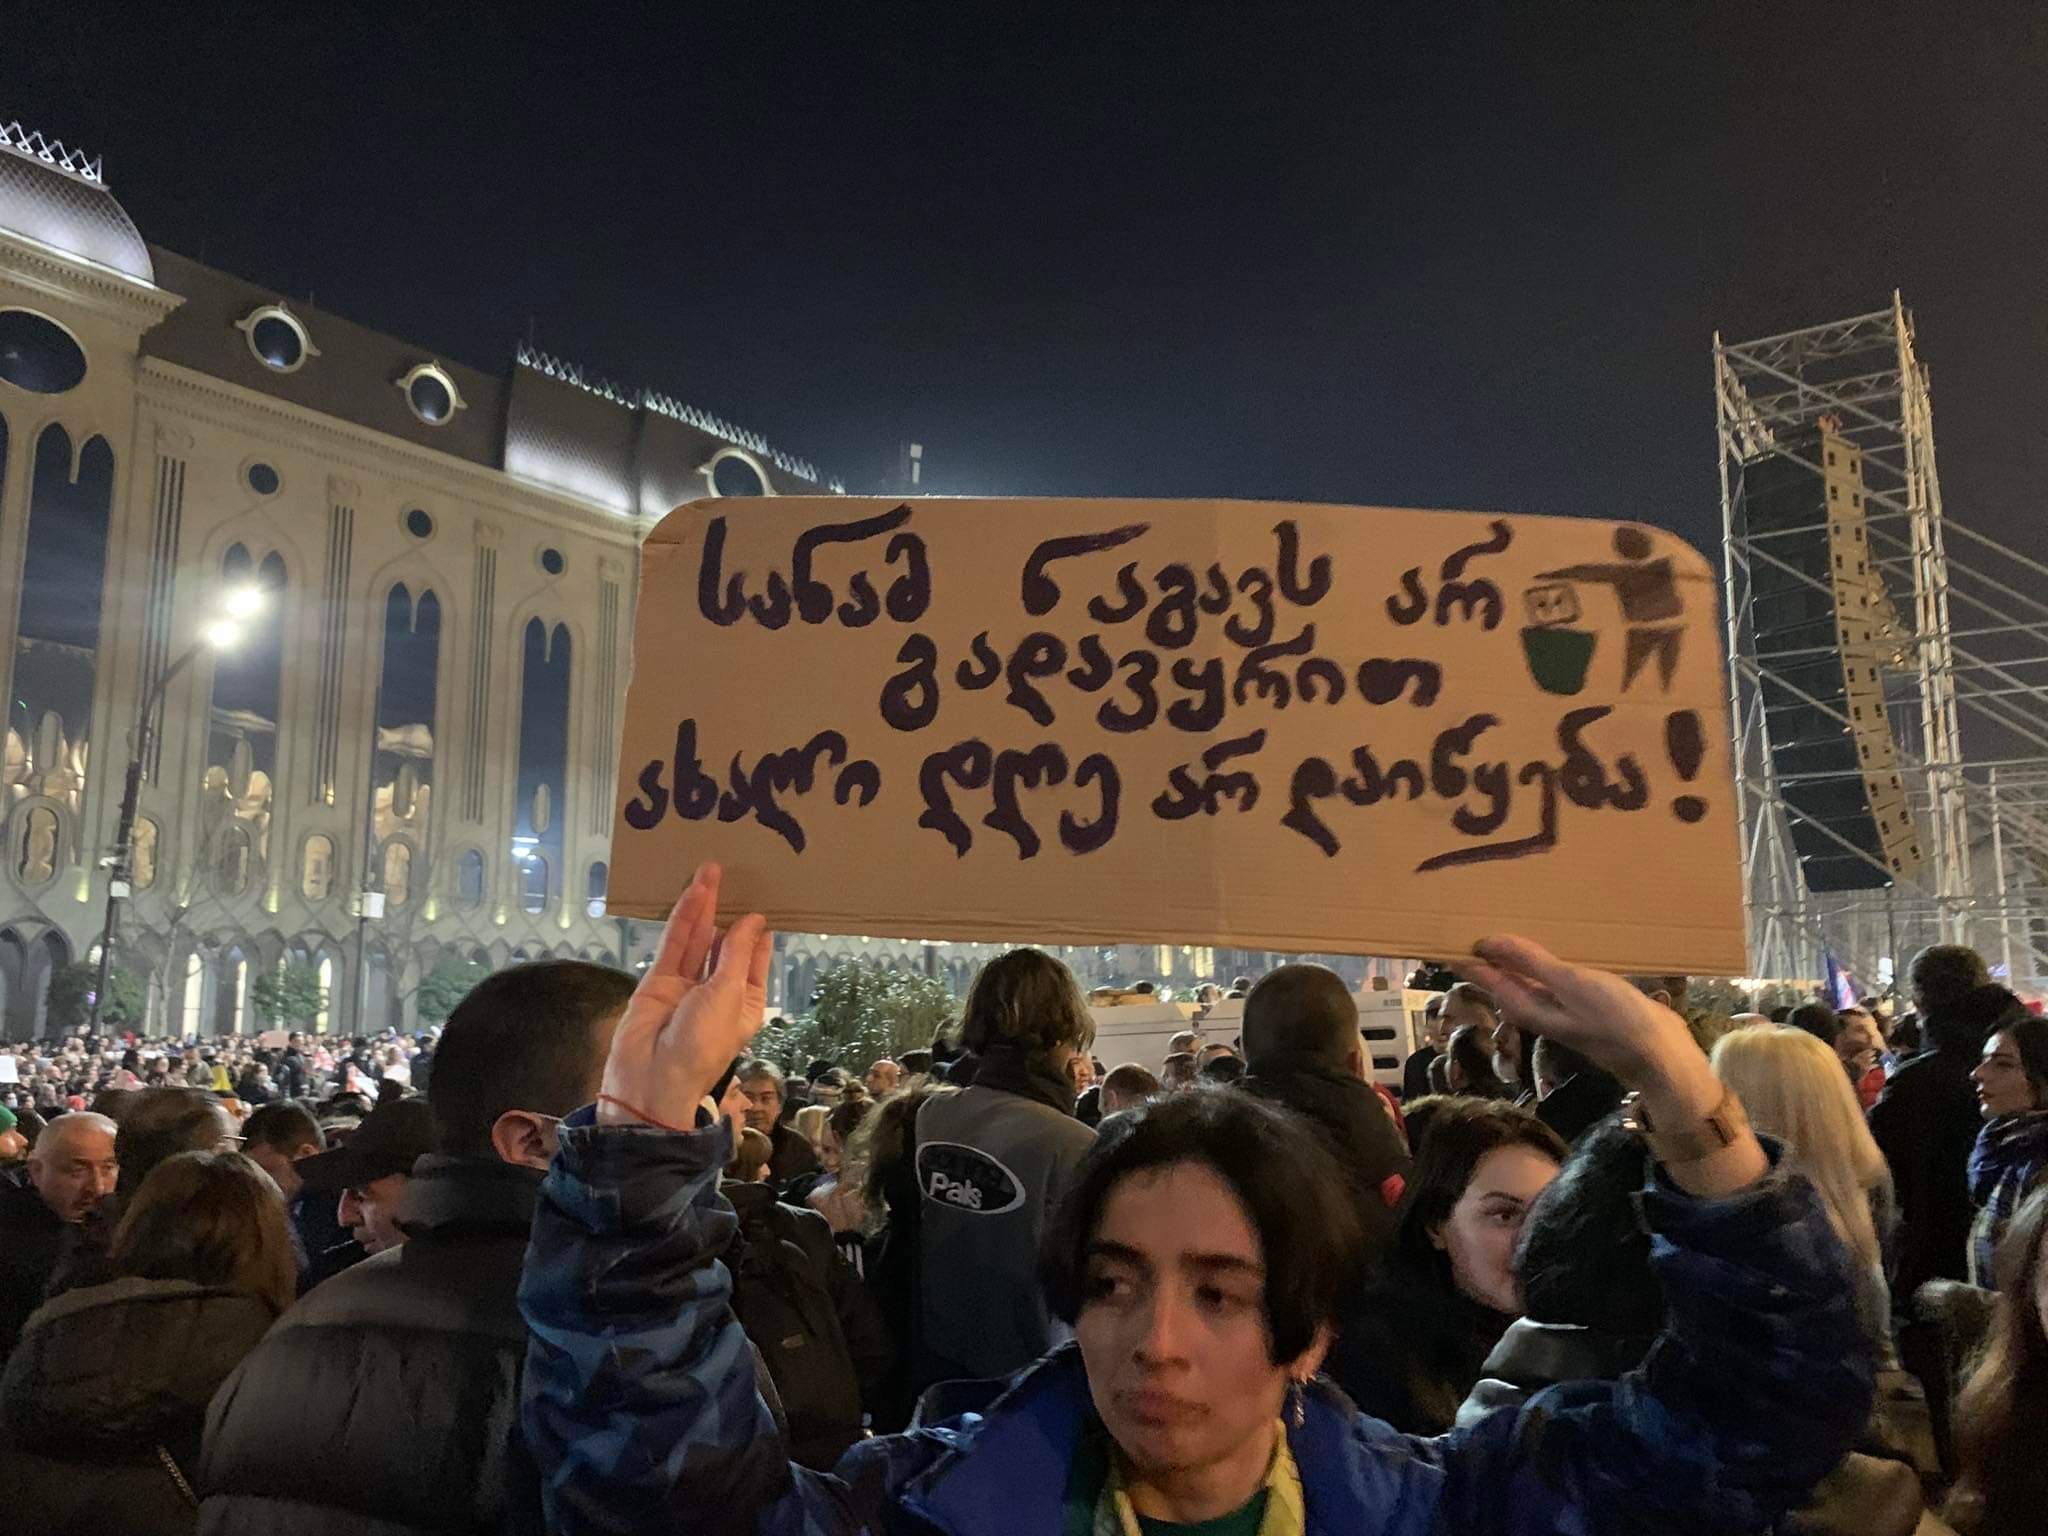 სანამ ნაგავს არ
გადავყრით
ახალი დღე არ დაიწყება!
Pals